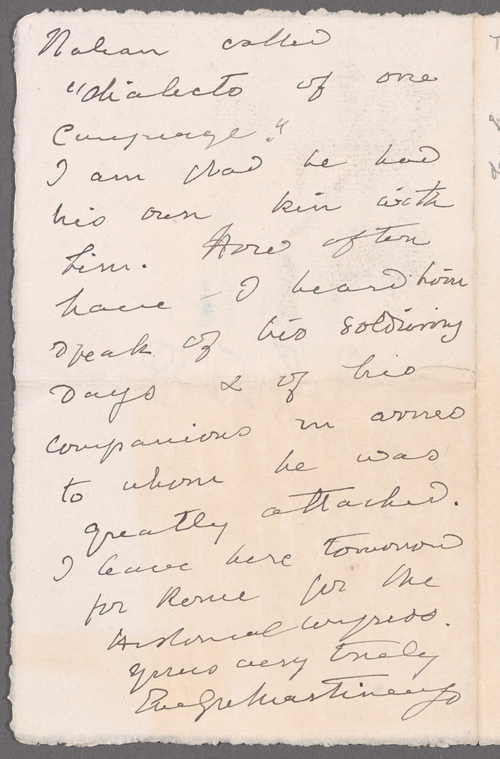 called
"dialects of one
language."
I am glad he had
his own kin with
him. How often
have I heard him
speak of his soldiering
days & of his
companions in armes
to whom he was
greatly attached.
I leave here tomorrow
for Rome for the
Historical Congress.
Yours very truly
E Martinengo